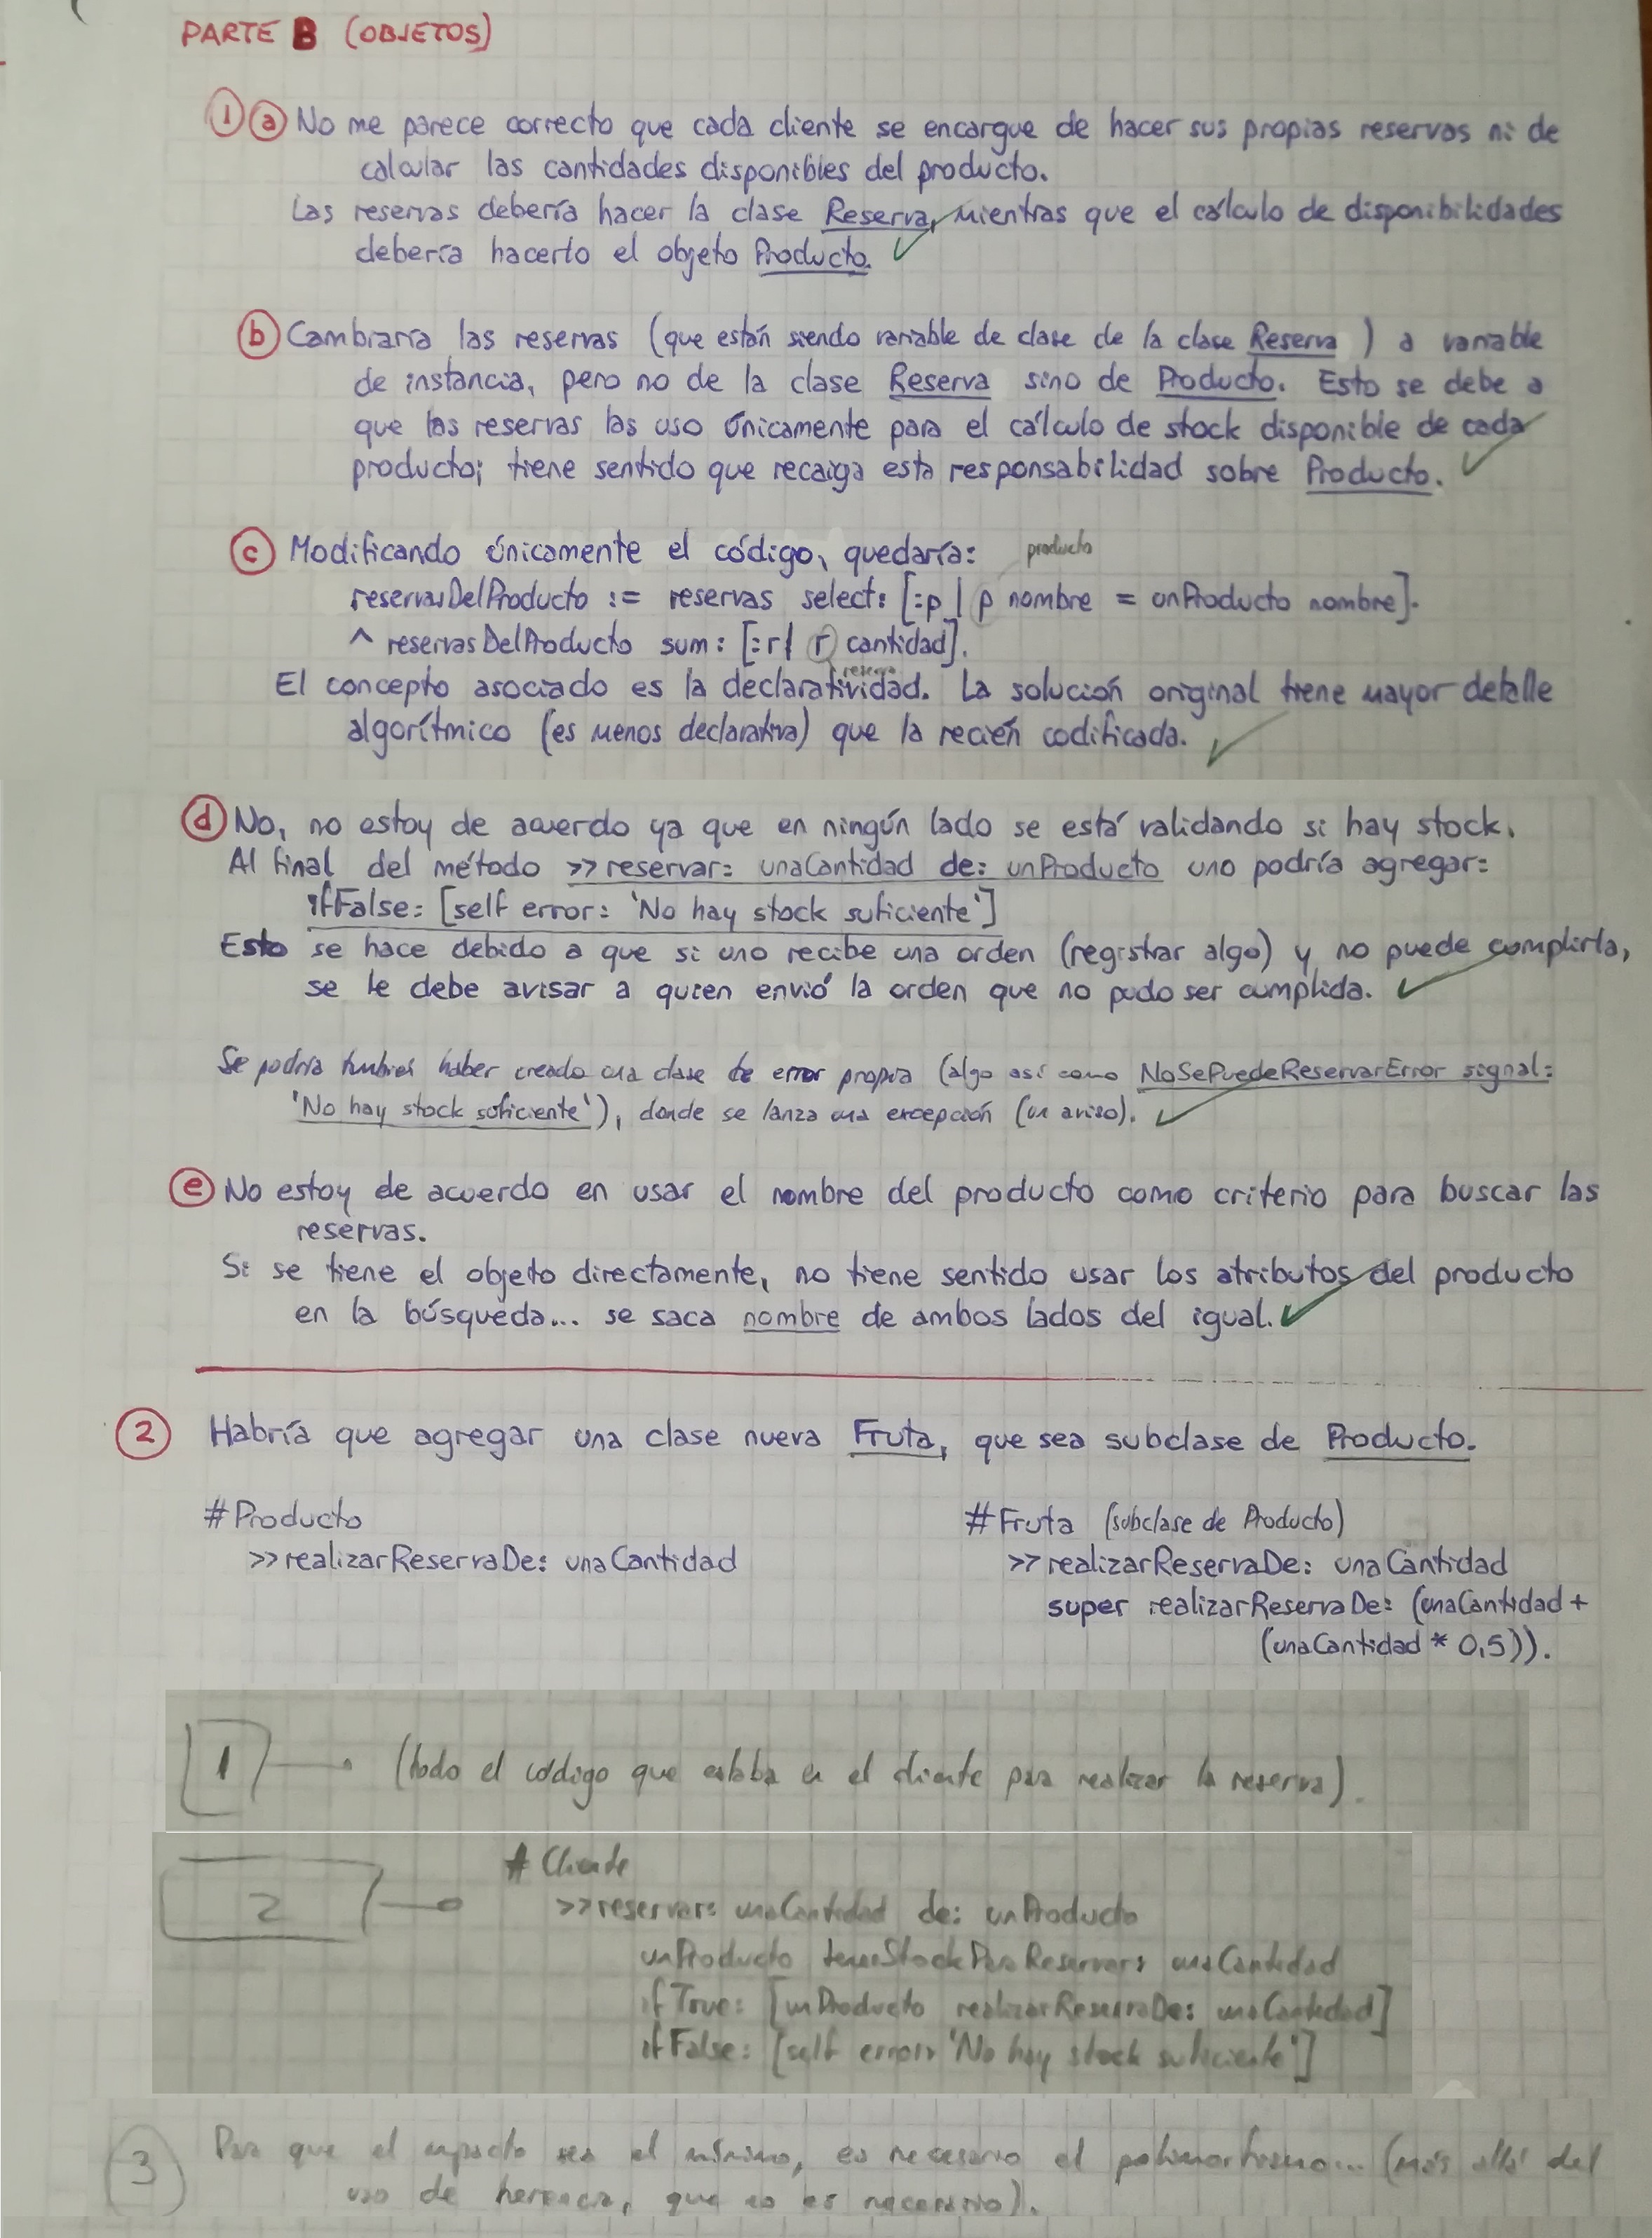 PARTE B (OBJETOS)
1 a No me parece correcto que cada cliente se encargue de hacer sus propias reservas ni de
calcular las cantidades disponibles del producto.
Las reservas debería hacer la clase Reserva, mientras que el cálculo de disponibilidades
debería hacerlo el objeto Producto.
b Cambiaría las reservas (que están siendo variable de clase de la clase Reserva) a variable
de instancia, pero no de la clase Reserva sino de Producto. Esto se debe a
que las reservas las uso únicamente para el cálculo de stock disponible de cada
producto; tiene sentido que recaiga esta responsabilidad sobre Producto.
c Modificando únicamente el código, quedaría:
producto
reservasDelProducto := reservas select: [:p | p nombre = unProducto nombre].
^ reservasDelProducto sum: [:r | r cantidad].
reserva
El concepto asociado es la declaratividad. La solución original tiene mayor detalle
algorítmico (es menos declarativa) que la recién codificada.
d No, no estoy de acuerdo ya que en ningún lado se está validando si hay stock.
Al final del método >> reservar: unaCantidad de: unProducto uno podría agregar:
ifFalse: [self error: 'No hay stock suficiente']
Esto se hace debido a que si uno recibe una orden (registrar algo) y no puede cumplirla,
se le debe avisar a quien envió la orden que no pudo ser cumplida.
Se podría también haber creado una clase de error propia (algo así como NoSePuedeReservarError signal:
'No hay stock suficiente'), donde se lanza una excepción (un aviso).
e No estoy de acuerdo en usar el nombre del producto como criterio para buscar las
reservas.
Si se tiene el objeto directamente, no tiene sentido usar los atributos del producto
en la búsqueda... se saca nombre de ambos lados del igual.
2 Habría que agregar una clase nueva Fruta, que sea subclase de Producto.
#Producto
>> realizarReservaDe: unaCantidad
#Fruta (subclase de Producto)
>> realizarReservaDe: unaCantidad
super realizarReservaDe: (unaCantidad +
(unaCantidad * 0,5)).
1 (todo el código que estaba en el cliente para realizar la reserva).
2
#Cliente
>> reservar: unaCantidad de: unProducto
unProducto tieneStockParaReservar: unaCantidad
ifTrue: [unProducto realizarReservaDe: unaCantidad]
ifFalse: [self error: 'No hay stock suficiente']
3 Para que el impacto sea el mínimo, es necesario el polimorfismo... (más allá del
uso de herencia, que no es necesario).